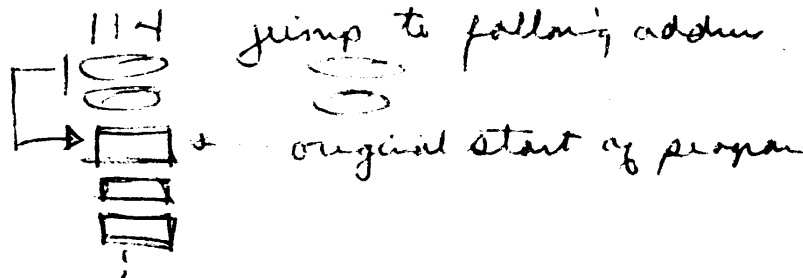 114 jump to following address
original start of program